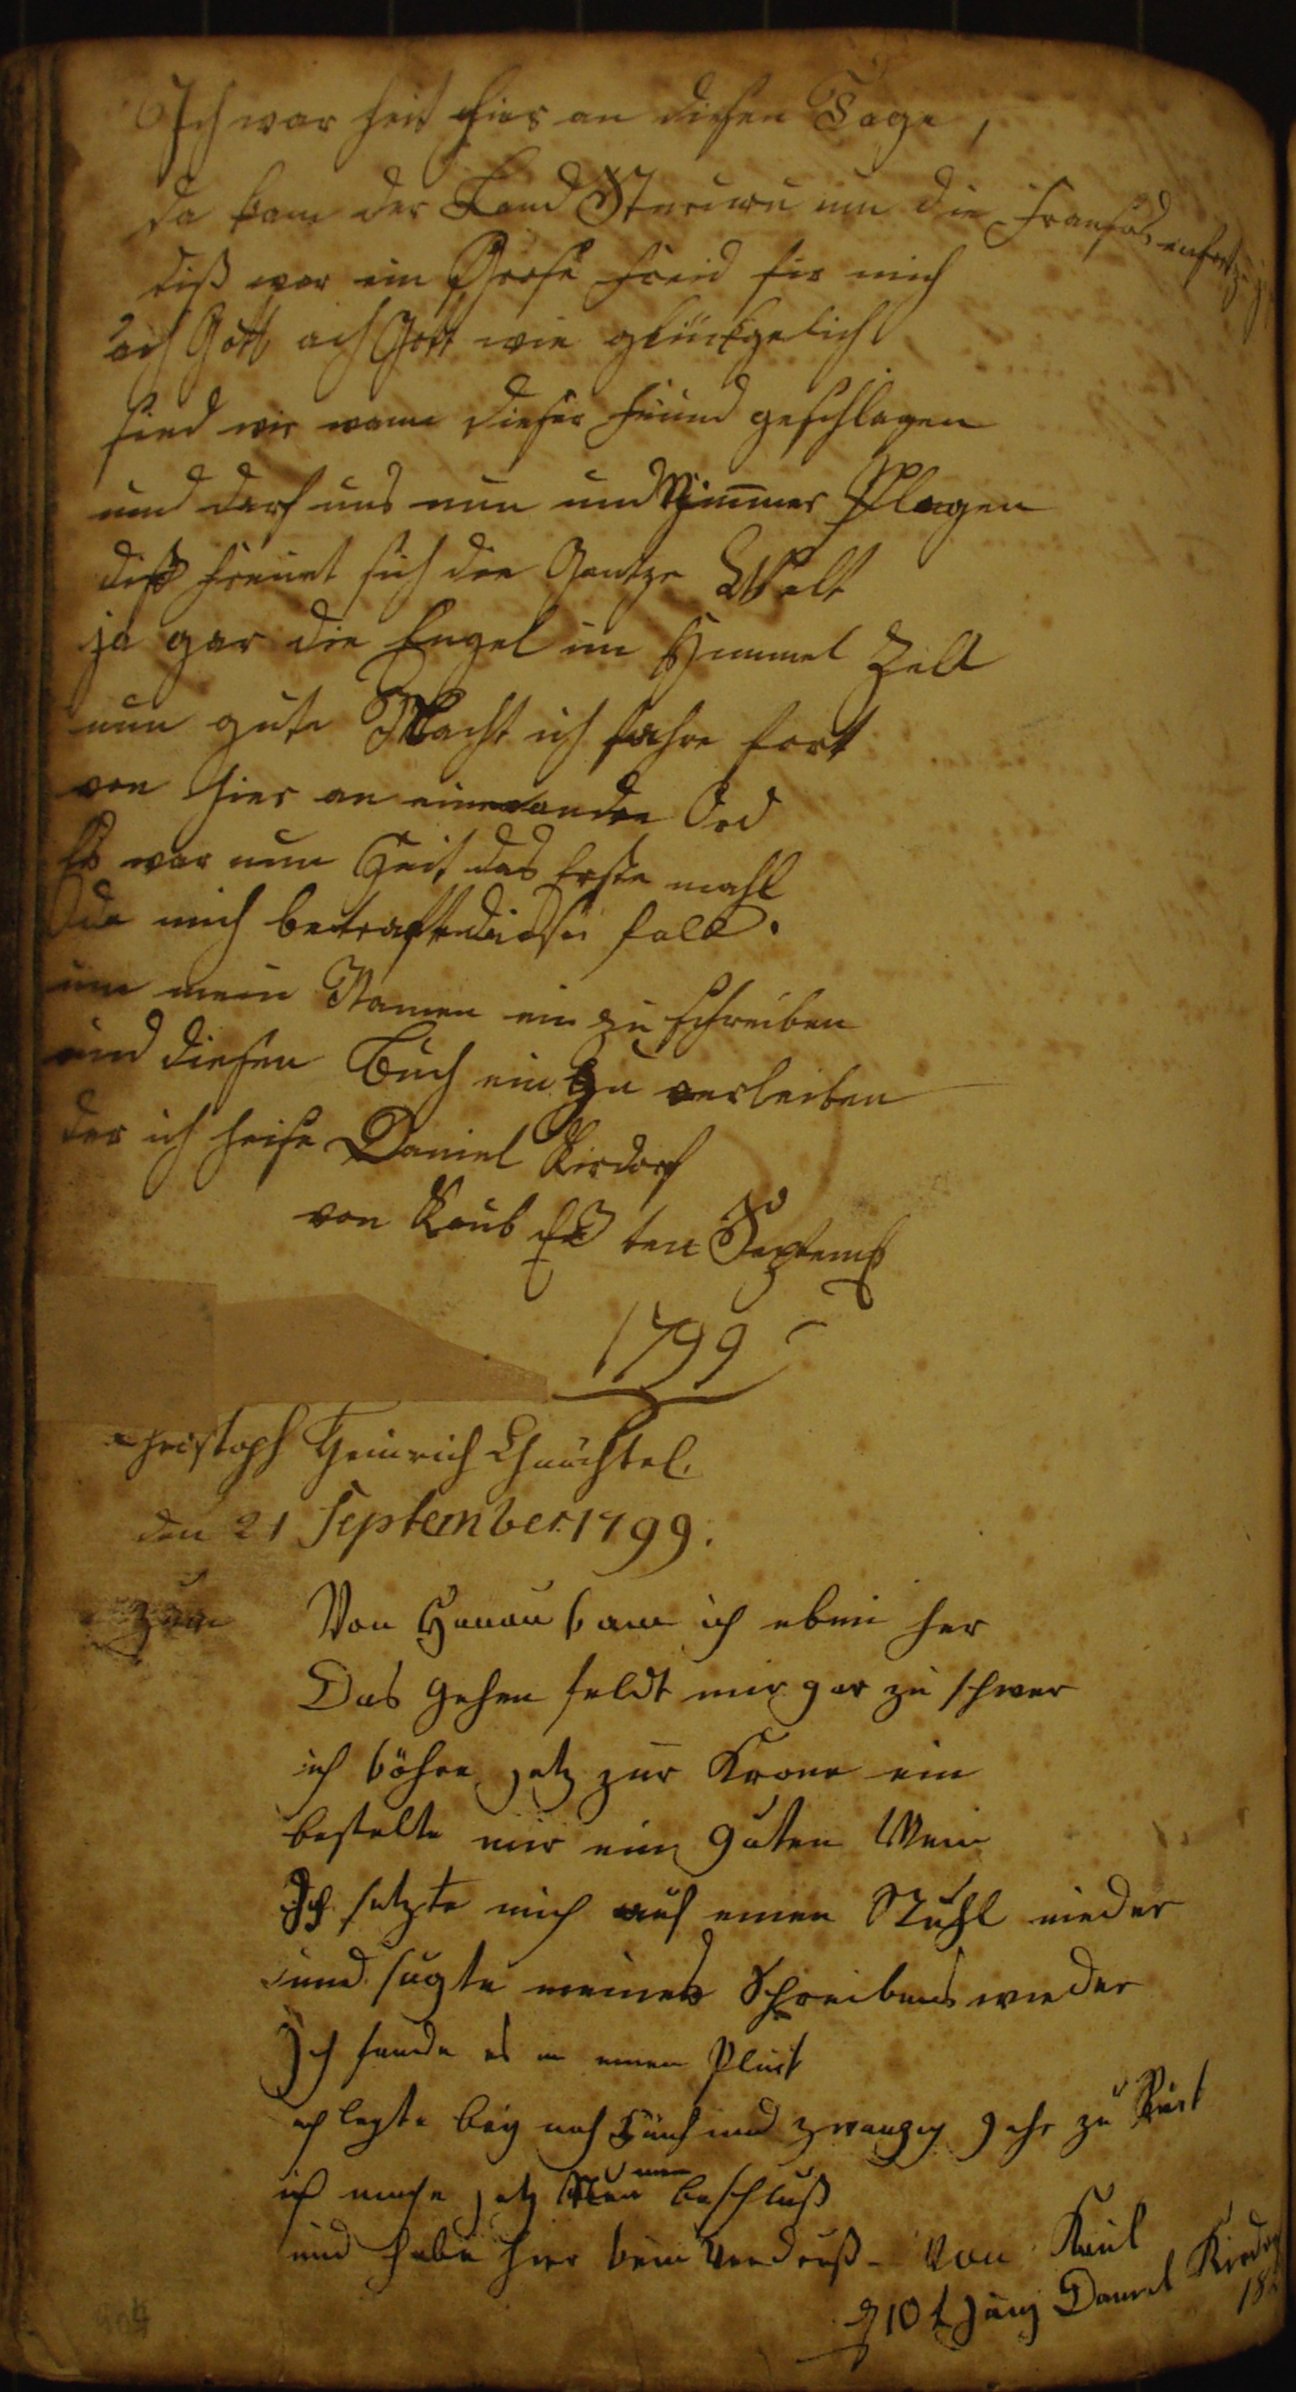 Ich war heit hier an diesen Tage,
da kam der Land Sturm um die Fransosen
diß war ein Grose freid fir mich
ach Gott ach Gott wie glückgelich
sind wir wann dieser feind geschlagen
und darf uns nun und Nimmer Plagen
diß freuet sich die Gantze Welt
ja gar die Engel im Himmel Zelt
nun gute Nacht ich fahre fort
von hier an einen andre Ord
Es war nun Heit das Erste mahl
Da mich betraffe dieser fall.
um mein Namen ein zu schreiben
und diesen Buch ein zu verleiben
der ich heise Daniel Kirdorf
von Kaub ten Septemb
1799
Christoph Heinrich
den 21 September 1799.
zum
Von Hanau kam ich eben her
Das gehen feldt mir gar zu schwer
ich köhre jetz zur Krone ein
bestelte mir ein guten Wein
Ich setzte mich auf einen Stuhl nieder
und sugte meines Schreibens wieder
Ich fande es in einen
legte bey nah Fünf und zwanzig Jahr zu
ich mache jetz nun beschluß
und habe hier kein Verdruß - von Kaub
10 t Daniel Kirdorf